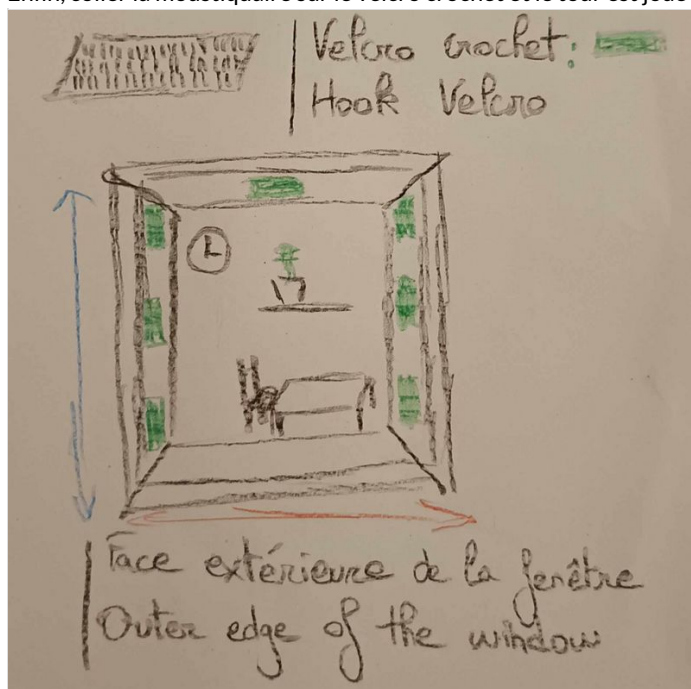 Velcro crochet:
Hook Velcro
Face extérieure de la fenêtre
Outer edge of the window